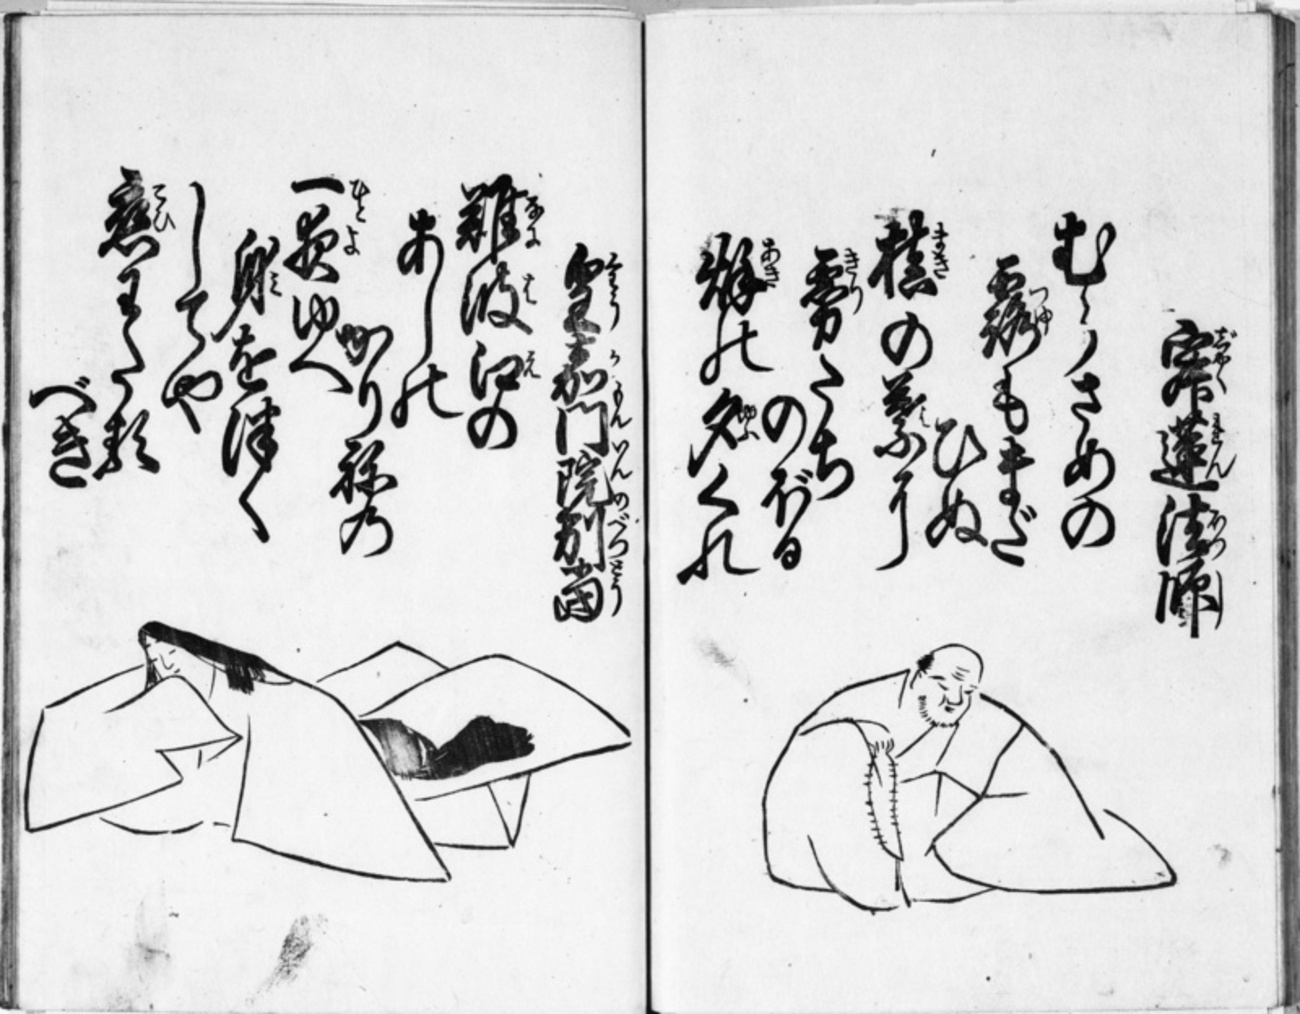 寂蓮法師
むらさめの
露もまだ
ひぬ
槙の葉に
霧たち
のぼる
秋の夕くれ
皇嘉門院別當
難波江の
あしの
かりねの
一夜ゆへ
身をつく
してや
恋わたる
べき